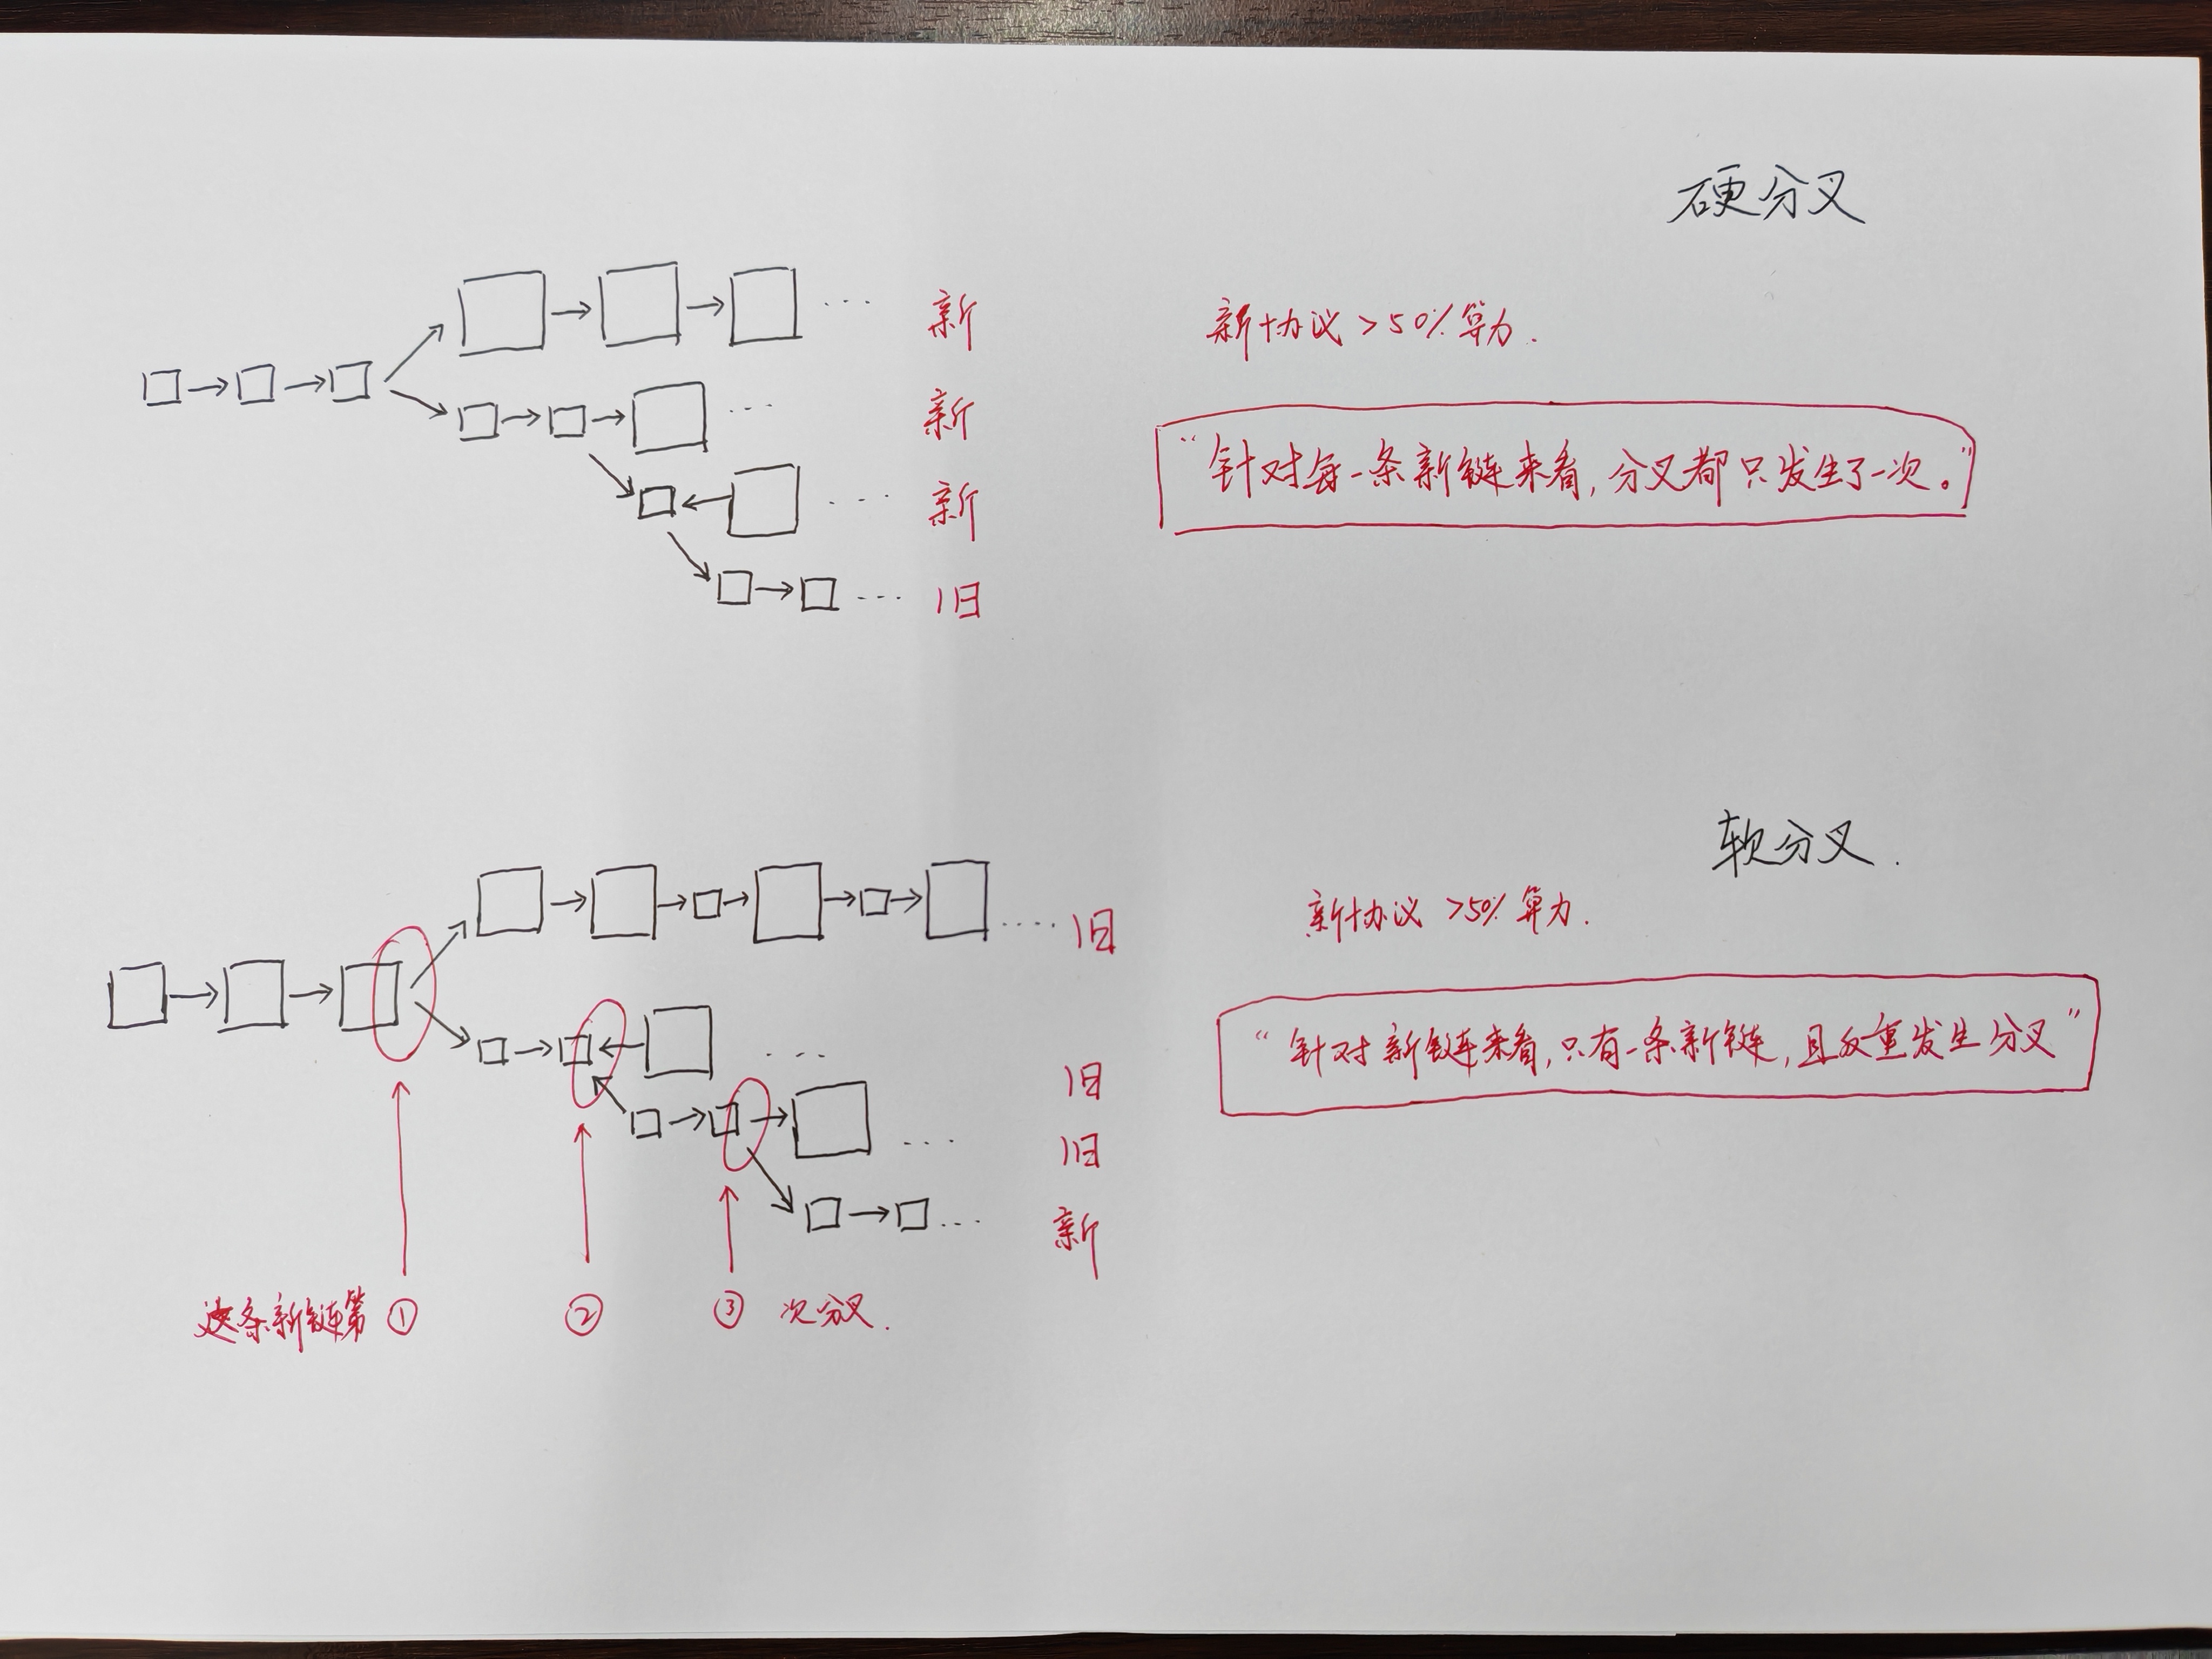 硬分叉
新
新协议>50%算力.
新
“针对每一条新链来看,分叉都只发生了一次。”
新
旧
软分叉.
新协议>50%算力.
旧
“针对新链来看,只有一条新链,且反重发生分叉”
旧
旧
新
这条新链第 ① ② ③ 次分叉.